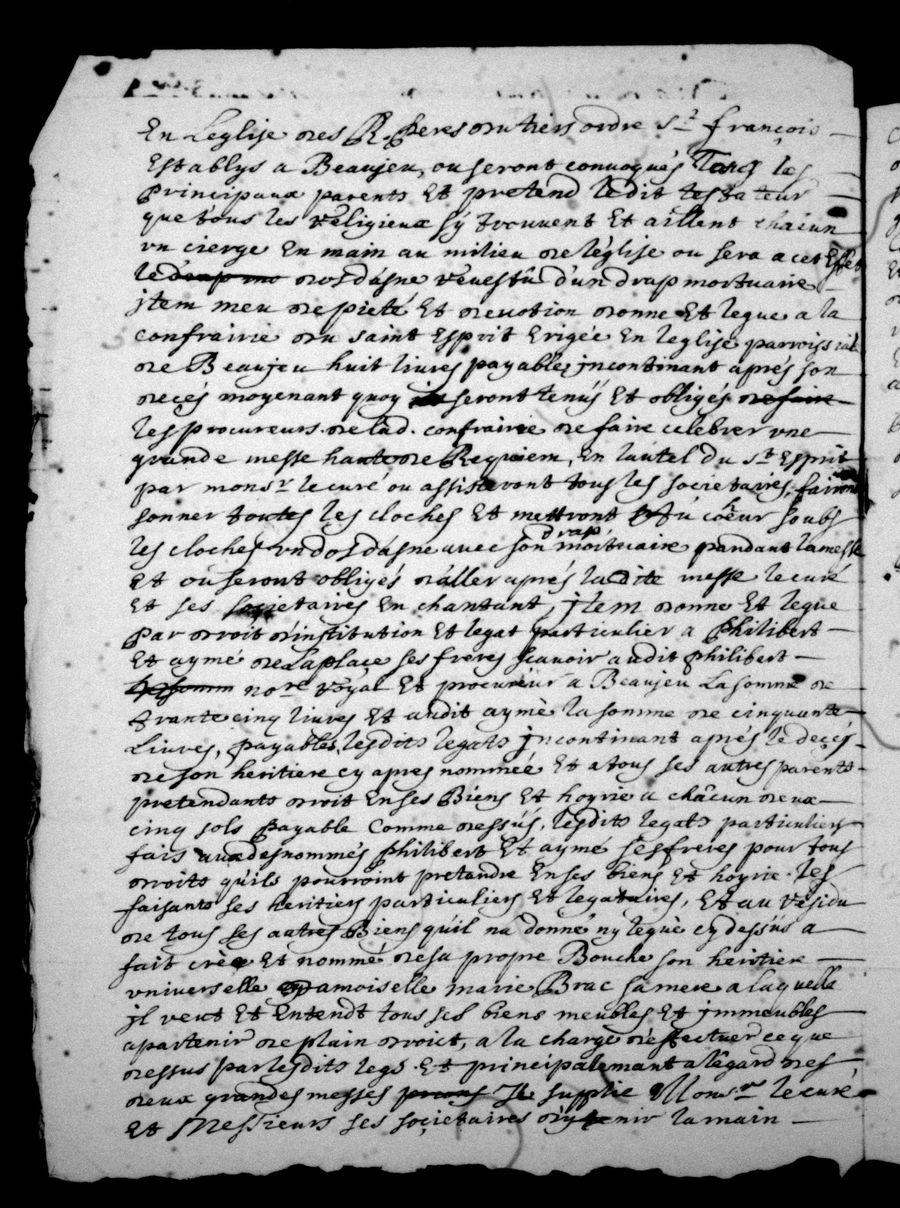 En Leglise des R. Peres du tiers ordre st françois
Establys a Beaujeu, ou seront convoqués tous les
principaux parents Et pretend ledit testateur
que tous les religieux sÿ trouvent Et aillent chacun
un cierge En main au milieu de léglise ou sera a cet Effet
le drap mo dosdasne revestû d'un drap mortuaire
jtem meu de pieté Et devotion donne Et legue a la
confrairie du saint Esprit Erigée En leglise parroissial
de Beaujeu huit livres payables jncontinant aprés son
decés moyenant quoy seront tenüs Et obligés de faire
les procureurs de lad. confrairie de faire celebrer une
grande messe haute de Requiem, En lautel du st Esprit
par monsr le curé ou assisteront tous les societaires, fairont
sonner toutes les cloches Et mettront au cœur soubs
les cloches un dosdasne avec son drap mortuaire pandant la messe
Et ou seront obligés daller aprés ladite messe le curé
Et ses soçietaires En chantant, jtem donne Et legue
par droit d'institution Et legat particulier a Philibert
Et aymé de Laplace ses freres sçavoir audit philibert
la somm nore royal Et procureur a Beaujeu La somme de
trante cinq livres Et audit aymé la somme de cinquante
Livres, payables lesdits legats jncontinant aprés le deçes
de son heritiere cy apres nommée Et a tous ses autres parents
pretendants droit En ses Biens Et hoyrie a châcun deux
cinq sols payable Comme dessus, lesdits legats particuliers
fais auxdesnommés Philibert Et ayme ses freres pour tous
droits quils pourroint pretandre En ses biens Et hoyrie les
faisants ses heritiers particuliers Et legataires, Et au residu
de tous ses autres Biens qu'il na donné ny legüé cy dessus a
fait crée Et nommé de sa propre Bouche son heritiere
universelle damoiselle marie Brac sa mere a laquelle
jl veut Et Entendt tous ses biens meubles Et jmmeubles
apartenir de plain droict, a la charge d'effectuer ce que
dessus par lesdits legs Et principalemant a lêgard des
deux grandes messes Il supplie Monsr le curé
Et Messieurs ses soçietaires dÿ tenir la main